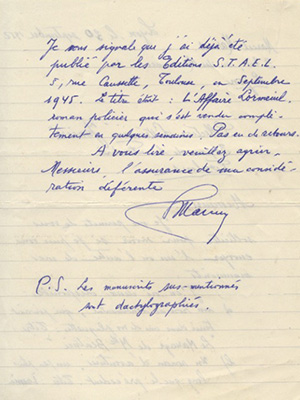 Je vous signale que j'ai déjà été
publié par les Editions S.T.A.E.L.
5, rue Caussette, Toulouse en Septembre
1945. Le titre était : L'Affaire Lormeuil.
roman policier qui s'est vendu complè-
tement en quelques semaines. Pas eu de retours.
A vous lire, veuillez agréer,
Messieurs, l'assurance de ma considé-
ration déférente
P.S. Les manuscrits sus-mentionnés
sont dactylographiés.